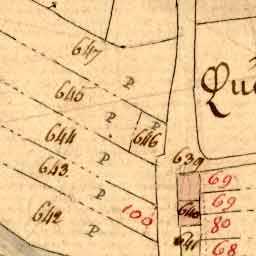 647
P
645
P
Qu
P
646
644
P
639
643
69
P
69
642
100
640
80
P
641
68